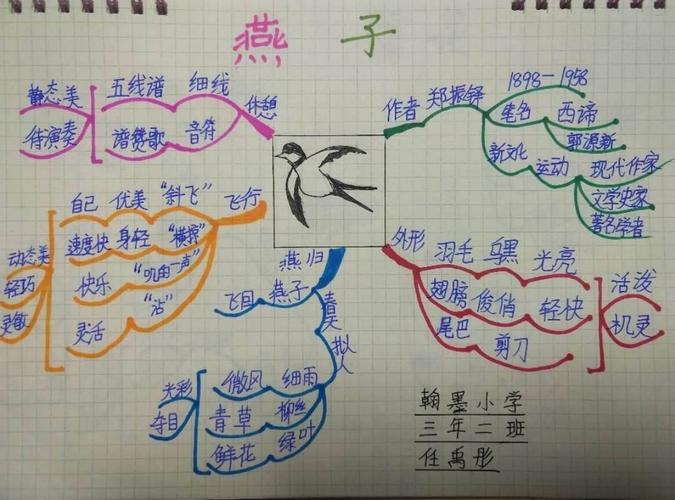 燕子
静态美 五线谱 细线 休憩
待演奏 谱赞歌 音符
作者 郑振铎 1898-1958
笔名 西谛
郭源新
新文化 运动 现代作家
文学史家
著名学者
自己 优美 "斜飞" 飞行
速度快 身轻 "横掠"
动态美
轻巧
灵敏
快乐 "叽的一声"
灵活 "沾"
外形 羽毛 乌黑 光亮
翅膀 俊俏 轻快
尾巴 剪刀
活泼
机灵
燕归
飞回 燕子 春天
拟人
光彩
夺目
微风 细雨
青草 柳丝
鲜花 绿叶
翰墨小学
三年二班
任禹彤